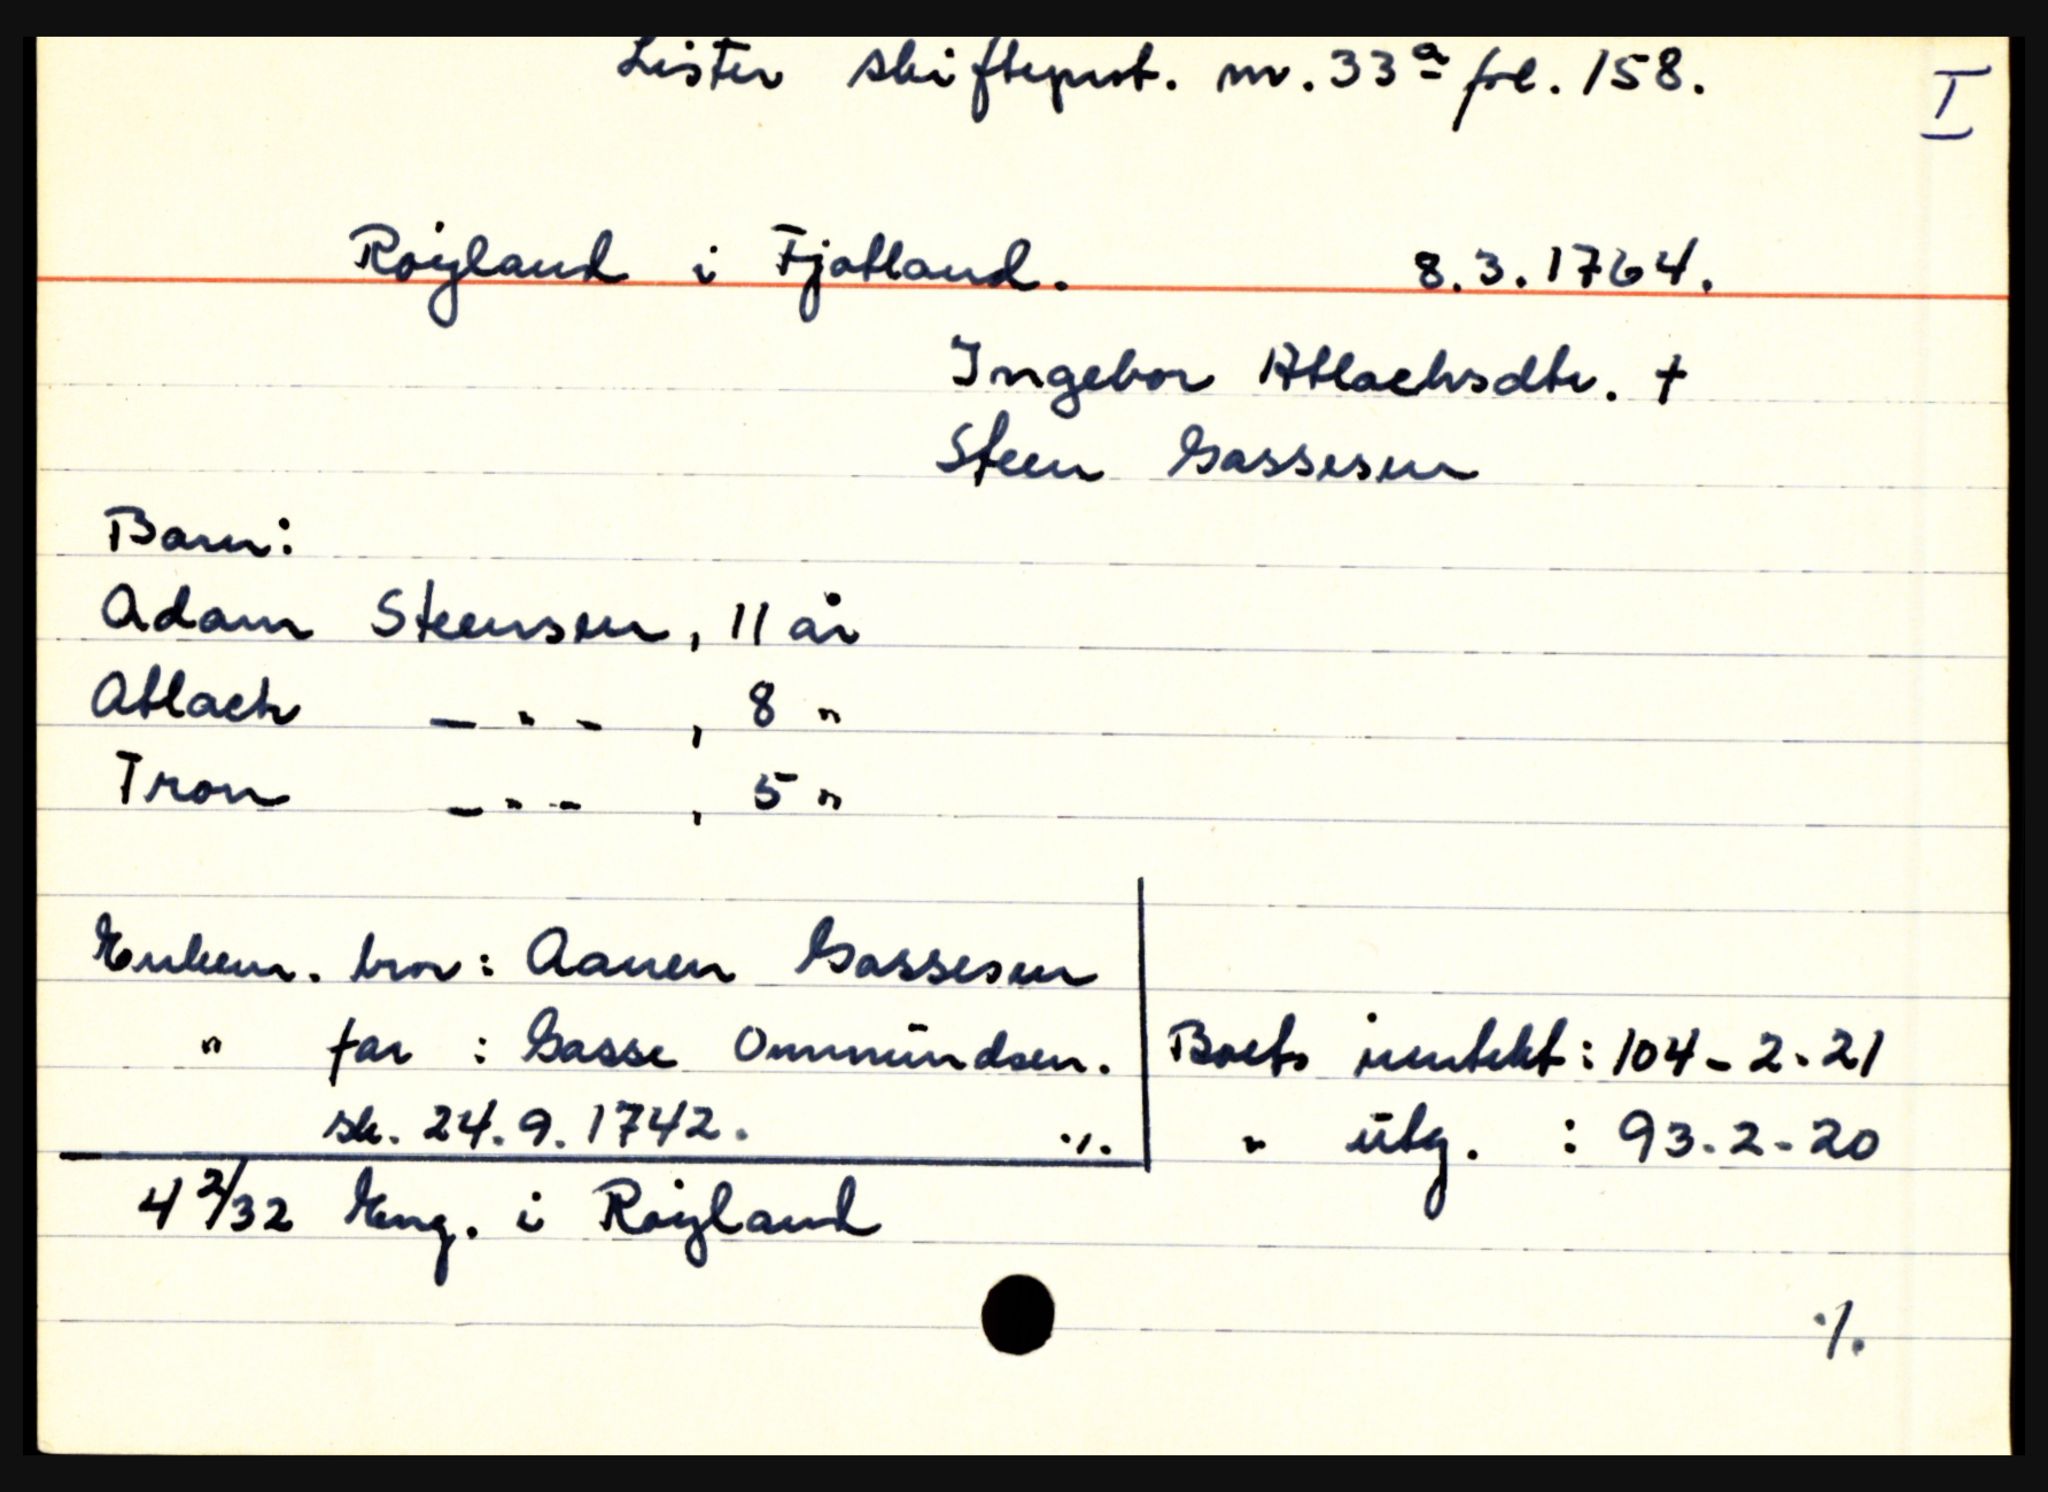 Lister skifteprot. nr. 33a fol. 158.
I
Røigland i Fjotland. 8.3.1764.
Ingebor Atlachsdtr. †
Steen Gassesen
Barn:
Adam Steensen, 11 år
Atlach — " — , 8 "
Tron — " — , 5 "
Enkem. bror: Aanen Gassesen
" far : Gasse Ommŭndsen.
sk. 24.9.1742. ·/.
Boets inntekt: 104-2-21
" ŭtg. : 93-2-20
4 2/32 Eng. i Røigland
·/.